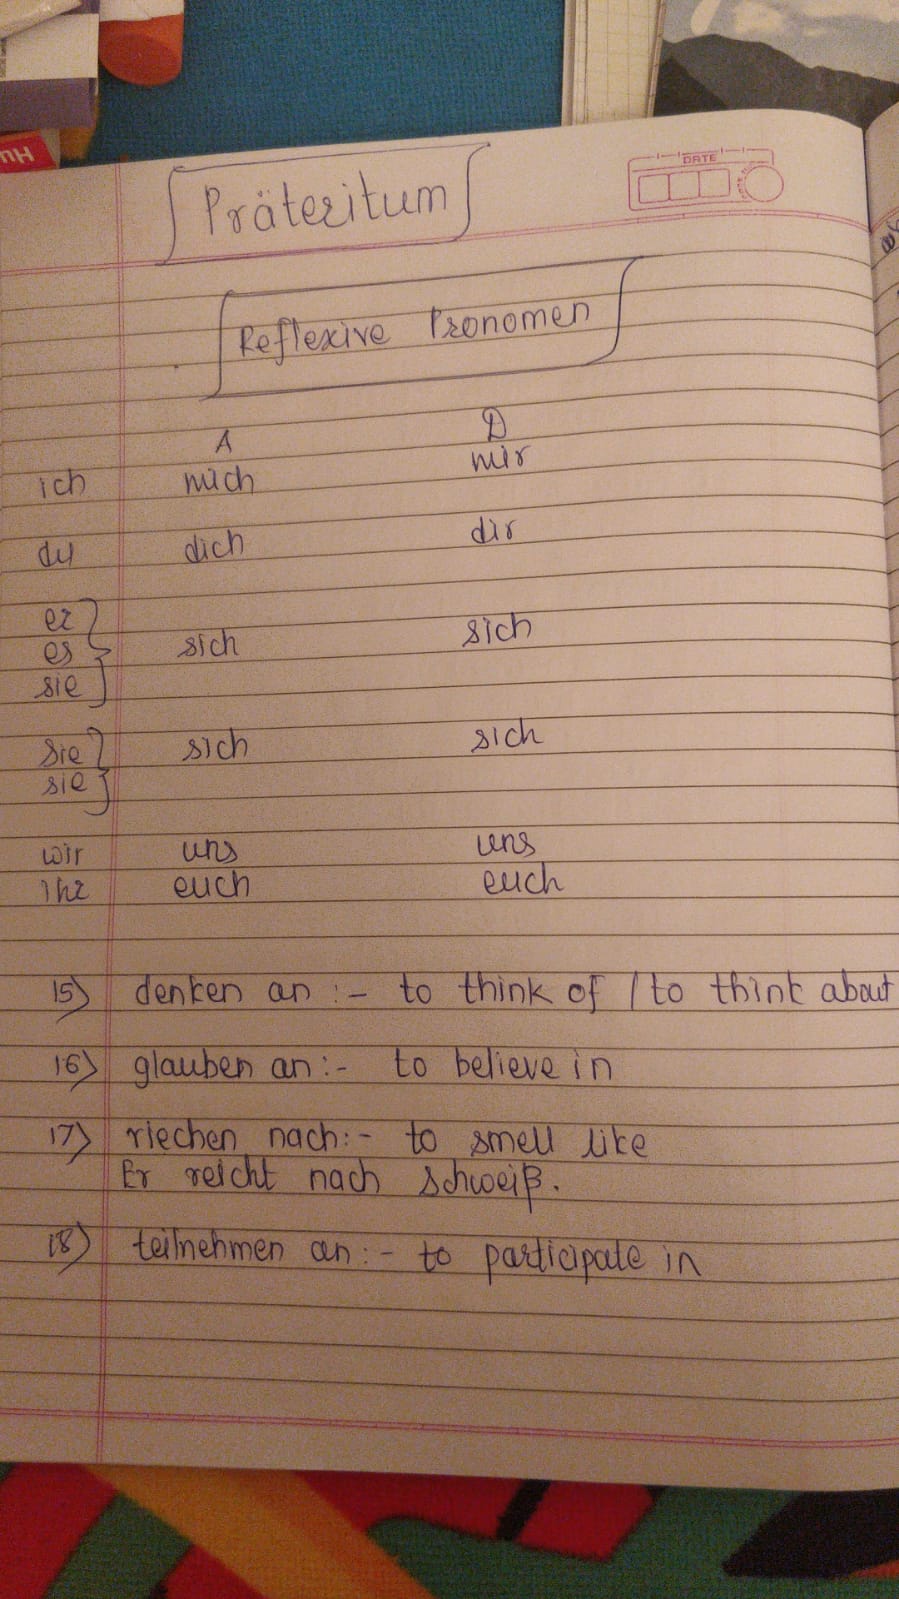 DATE
Präteritum
Reflexive Pronomen
A D
ich mich mir
du dich dir
er
es sich sich
sie
Sie sich sich
sie
wir uns uns
ihr euch euch
15) denken an :- to think of / to think about
16) glauben an :- to believe in
17) riechen nach :- to smell like
Er reicht nach Schweiß.
18) teilnehmen an :- to participate in